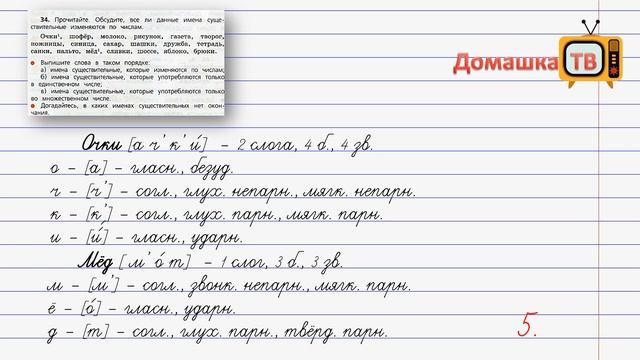 34. Прочитайте. Обсудите, все ли данные имена суще-
ствительные изменяются по числам.
Очки¹, шофёр, молоко, рисунок, газета, творог,
ножницы, синица, сахар, шашки, дружба, тетрадь,
санки, пальто, мёд¹, сливки, шоссе, яблоко, брюки.
Выпишите слова в таком порядке:
а) имена существительные, которые изменяются по числам;
б) имена существительные, которые употребляются только
в единственном числе;
в) имена существительные, которые употребляются только
во множественном числе.
Догадайтесь, в каких именах существительных нет окон-
чания.
Домашка ТВ
Очки [а ч' к' и́] – 2 слога, 4 б., 4 зв.
о – [а] – гласн., безуд.
ч – [ч'] – согл., глух. непарн., мягк. непарн.
к – [к'] – согл., глух. парн., мягк. парн.
и – [и́] – гласн., ударн.
Мёд [ м' о́ т] – 1 слог, 3 б., 3 зв.
м – [м'] – согл., звонк. непарн., мягк. парн.
ё – [о́] – гласн., ударн.
д – [т] – согл., глух. парн., твёрд. парн.
5.